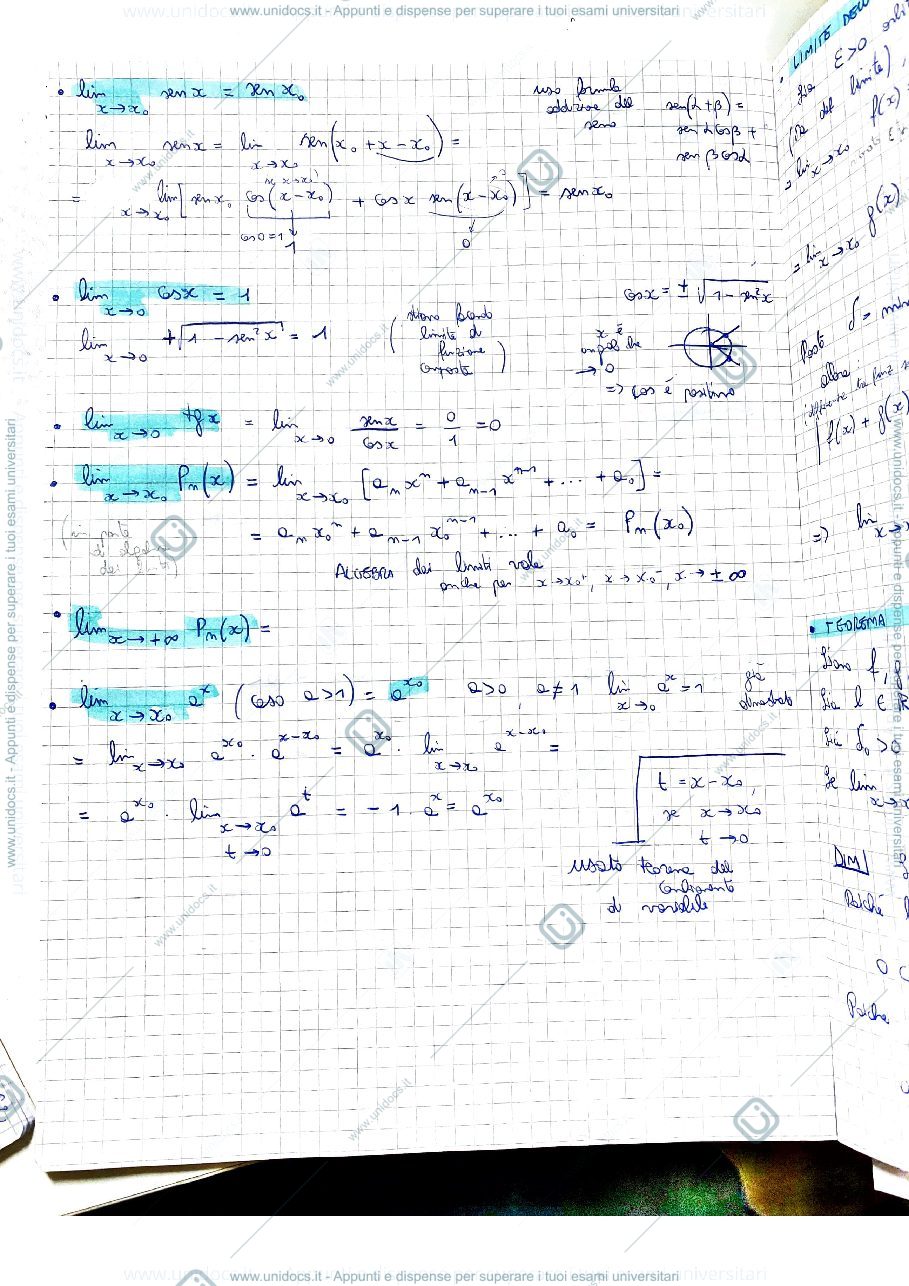 www.unidocs.it - Appunti e dispense per superare i tuoi esami universitari
• lim x→x₀ sen x = sen x₀
uso formula addizione del seno
sen(α+β) = sen α cos β + sen β cos α
lim x→x₀ sen x = lim x→x₀ sen(x₀ + x − x₀) =
= lim x→x₀ [sen x₀ cos(x − x₀) + cos x sen(x − x₀)] = sen x₀
cos 0 = 1
1
0
• lim x→0 cos x = 1
cos x = ± √(1 − sen²x)
lim x→0 +√(1 − sen²x) = 1
limite di funzione composta
x è angolo che → 0
=> cos è positivo
• lim x→0 tg x = lim x→0 sen x / cos x = 0/1 = 0
• lim x→x₀ Pₙ(x) = lim x→x₀ [aₙxⁿ + aₙ₋₁xⁿ⁻¹ + ... + a₀] =
= aₙx₀ⁿ + aₙ₋₁x₀ⁿ⁻¹ + ... + a₀ = Pₙ(x₀)
ALGEBRA dei limiti vale
anche per x→x₀⁺, x→x₀⁻, x→±∞
• lim x→+∞ Pₙ(x) =
• lim x→x₀ aˣ (caso a>1) = aˣ⁰ a>0, a≠1 lim x→0 aˣ = 1 già dimostrato
= lim x→x₀ aˣ⁰ · aˣ⁻ˣ⁰ = aˣ⁰ · lim x→x₀ aˣ⁻ˣ⁰ =
= aˣ⁰ · lim x→x₀ t→0 aᵗ = − 1 · aˣ = aˣ⁰
t = x − x₀,
se x→x₀
t→0
usato teorema del
di variabile
• LIMITE
ε>0
lim x→x₀ f(x)
= lim x→x₀ g(x)
Posto δ = min
allora
|f(x) + g(x)
=> lim x→
• TEOREMA
Siano f,
Sia l ∈
Sia δ₀ > 0
Se lim x→x
DIM
Poiché
0 <
Poiché
www.unidocs.it - Appunti e dispense per superare i tuoi esami universitari